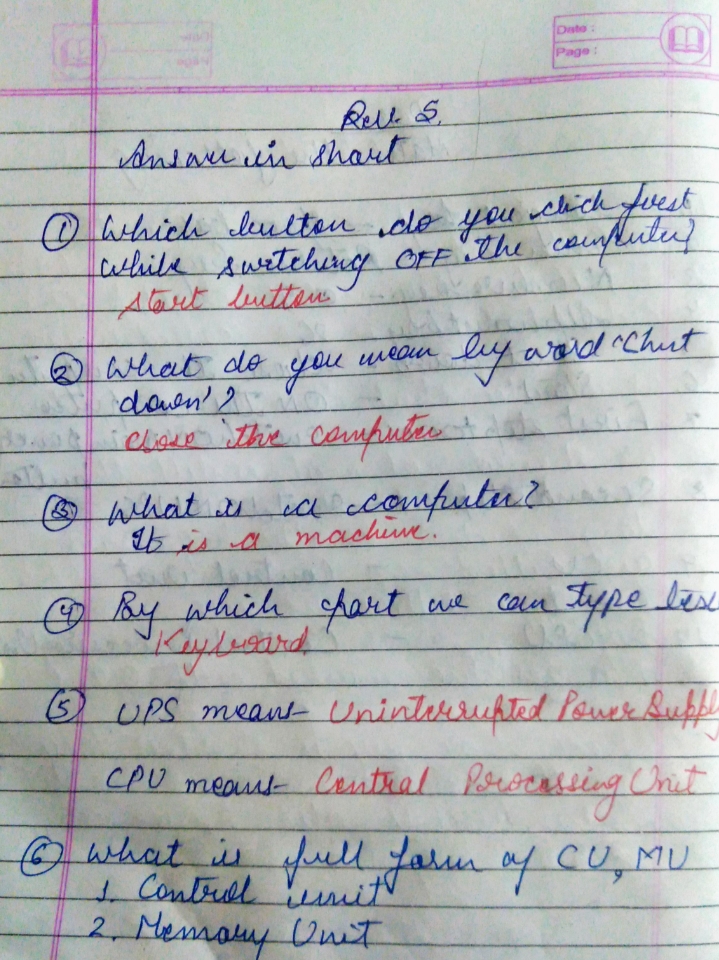 Date :
Page :
Answer in short
① Which button do you click first
while switching OFF the computer?
start button
② What do you mean by word 'Shut
down'?
close the computer
③ What is a computer?
It is a machine.
④ By which part we can type
Keyboard.
⑤ UPS means- Uninterrupted Power Supply
CPU means- Central Processing Unit
⑥ What is full form of CU, MU
1. Control unit
2. Memory Unit